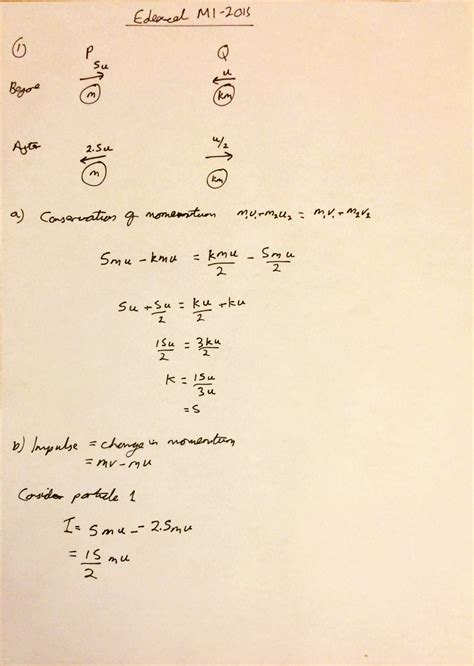 Edexcel M1-2015
① P Q
Before 5u u
m km
After 2.5u u/2
m km
a) Conservation of momentum m₁u₁+m₂u₂ = m₁v₁+m₂v₂
5mu - kmu = kmu/2 - 5mu/2
5u + 5u/2 = ku/2 + ku
15u/2 = 3ku/2
k = 15u/3u
=5
b) Impulse = change in momentum
= mv - mu
Consider particle 1
I = 5mu - - 2.5mu
= 15/2 mu